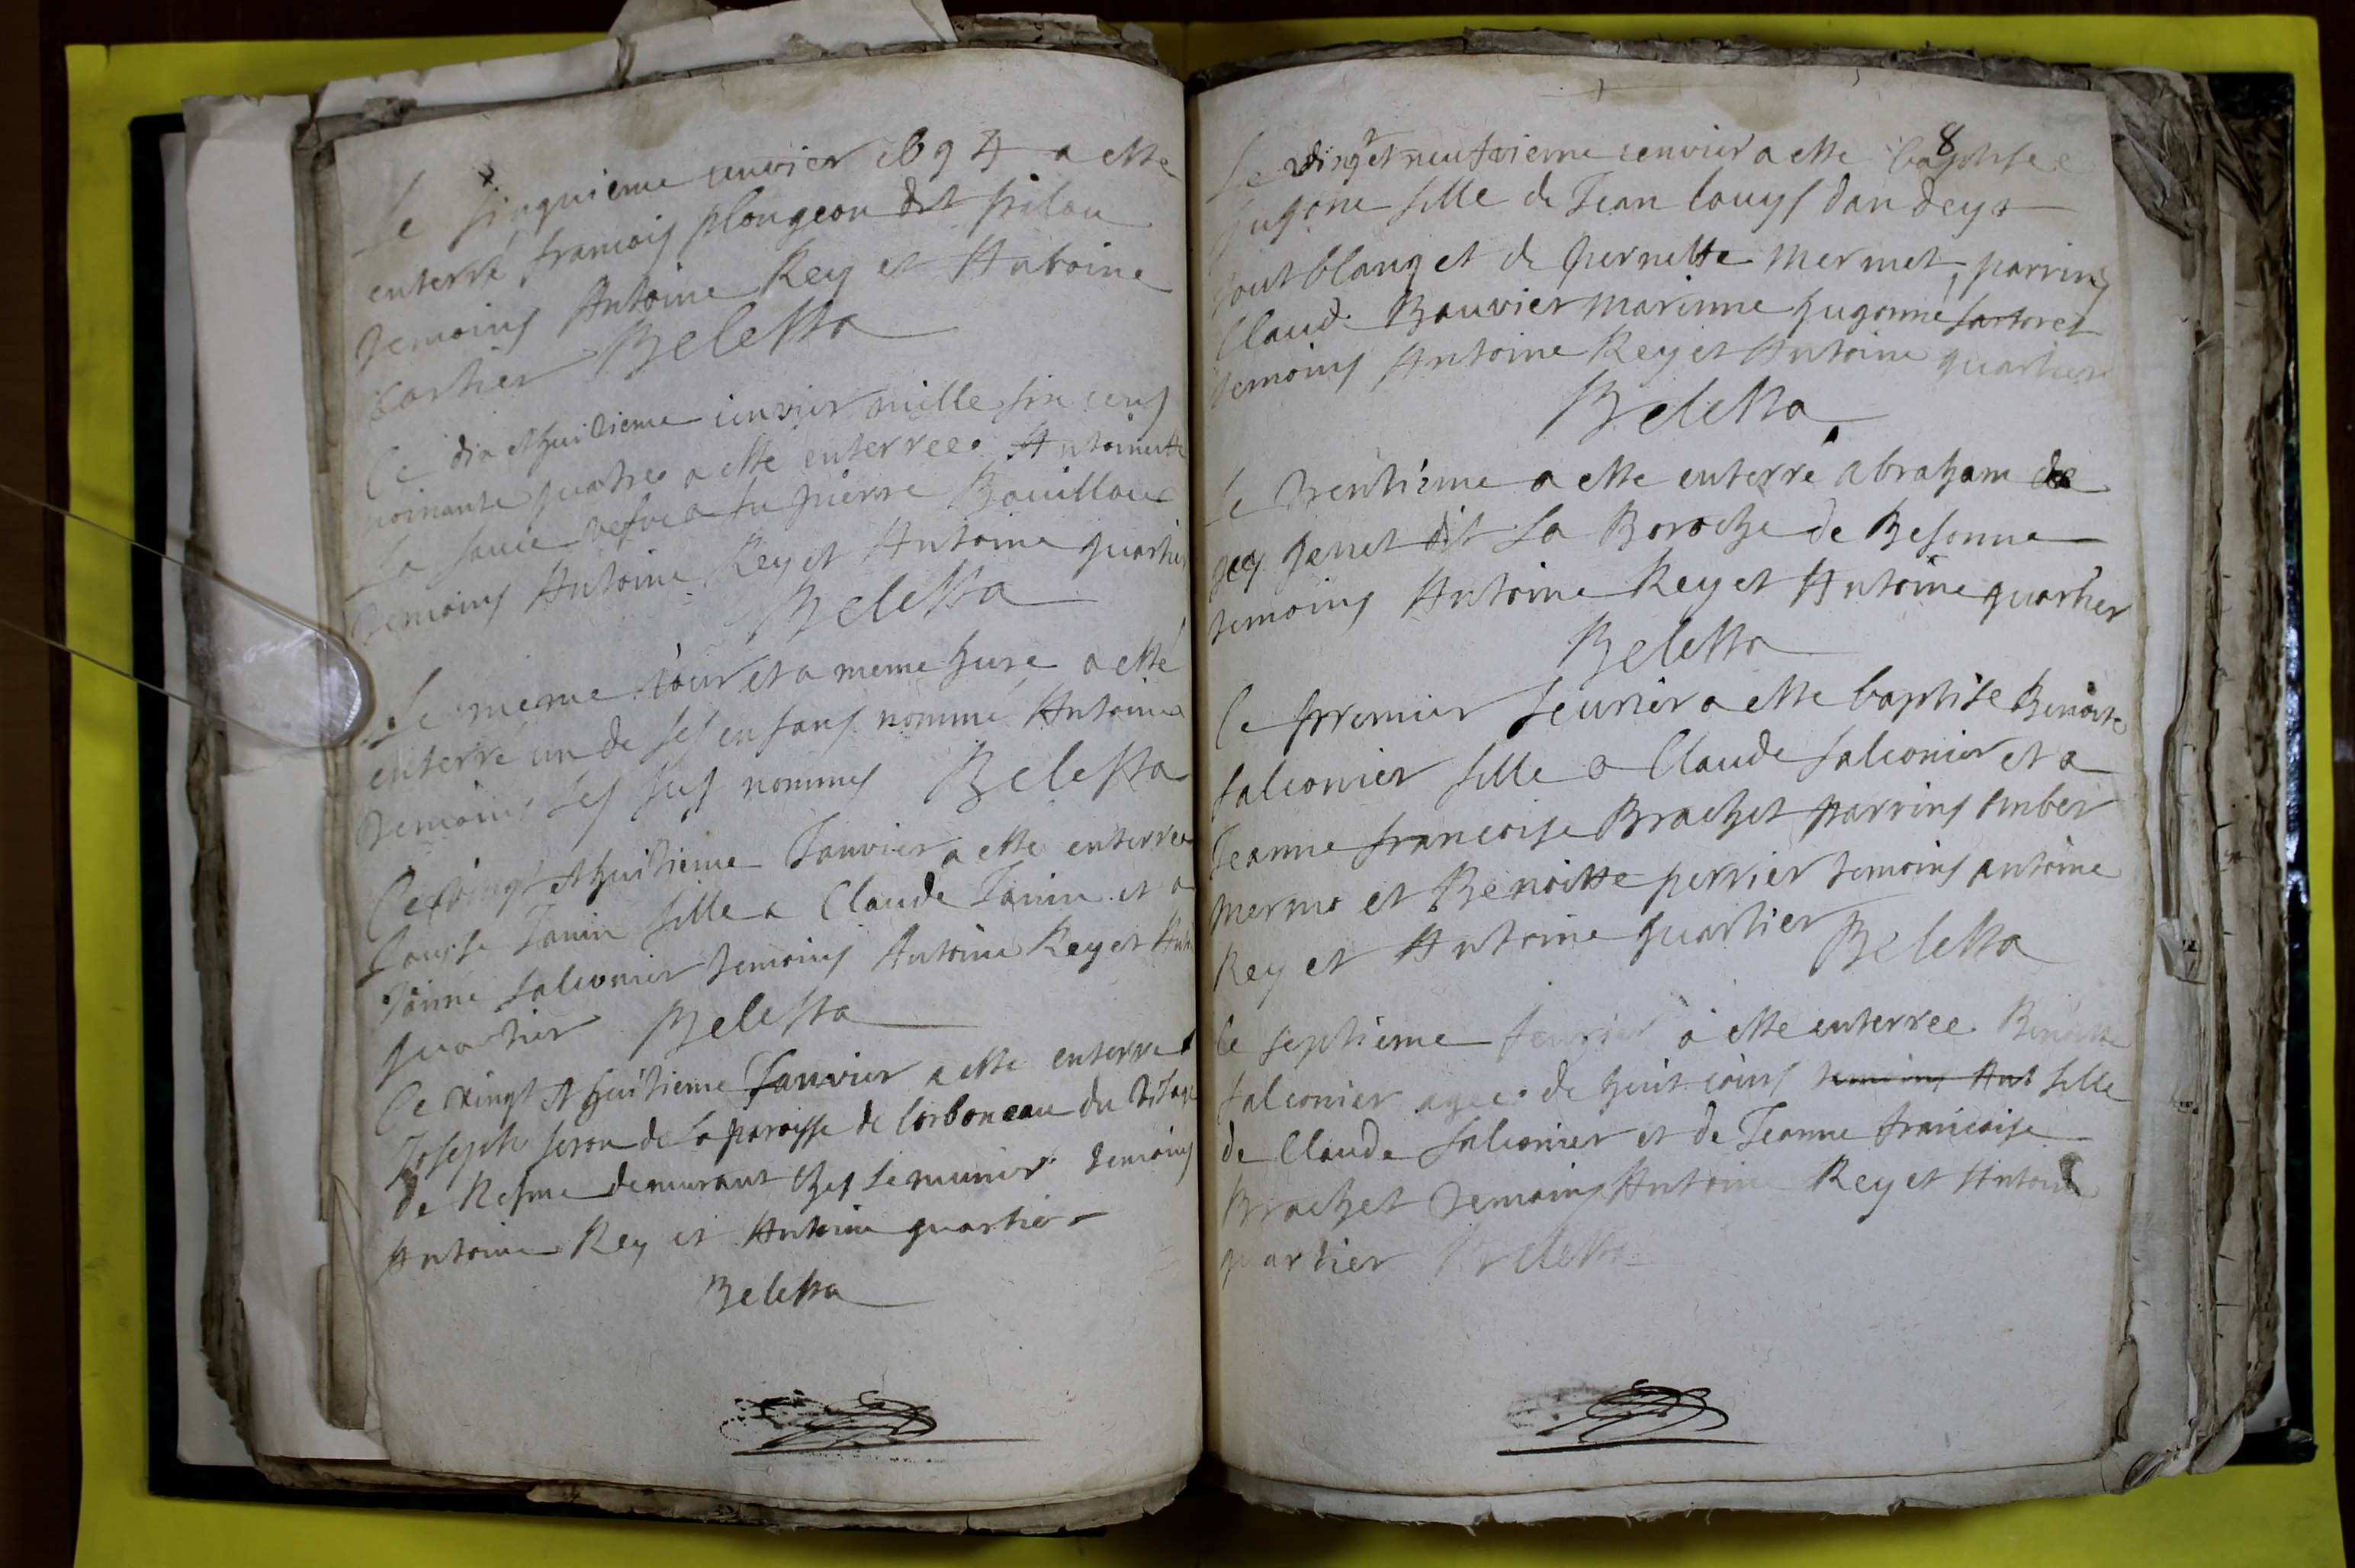 Le sinquieme ienvier 1694 a este
enterré francois plongeon dit frilou
temoins Antoine Rey et Antoine
cartier Beletta
Ce dix et huitieme ienvier mille six cens
nonante quatre a esté enterree Antoinette
La vefve a fu pierre Bouilloux
temoins Antoine Rey et Antoine quartier
Beletta
Le meme iour et a meme hure a esté
enterré un de ses enfans nommé Antoine
temoins les sus nommes Beletta
Ce vingt et huitieme Janvier a este enterree
Louyse Janin fille a Claude Janin et a
Janne falconier temoins Antoine Rey et Anto
quartier Beletta
Ce vingt et huitieme Janvier a este enterré
Joseph seron de la paroisse de Corboneau du vilage
de demurant ches le munier temoins
Antoine Rey et Antoine quartier
Beletta
8
Le vingt et neufvieme ienvier a este baptisee
hugonne fille de Jean louys dandeys
et de pernette mermet, parrins
Claude Bouvier marinne hugonne sartoret
temoins Antoine Rey et Antoine quartier
Beletta
Le trentieme a este enterré abraham de
genet dit La Boroche de Besonne
temoins Antoine Rey et Antoine quartier
Beletta
Ce premier feuvrier a este baptise Benoite
falconier fille a Claude falconier et a
Jeanne francoise Brachet parrins Imber
merme et Benoitte perrier temoins antoine
Rey et Antoine quartier Beletta
Ce septieme feuvrier a este enterree Benoitte
falconier agee de huit iours temoins Ant fille
de Claude falconier et de Jeanne francoise
Brachet temoins Antoine Rey et Antoine
quartier Beletta